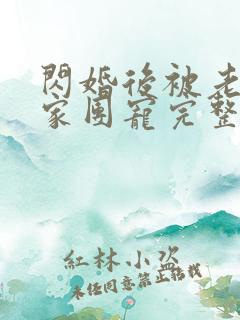 閃婚後被老
家團寵完整
紅林小盜
未任同意禁止轉載